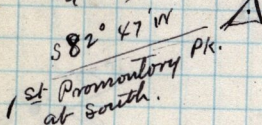 S 82° 47' W
1st Promontory Pk.
at South.